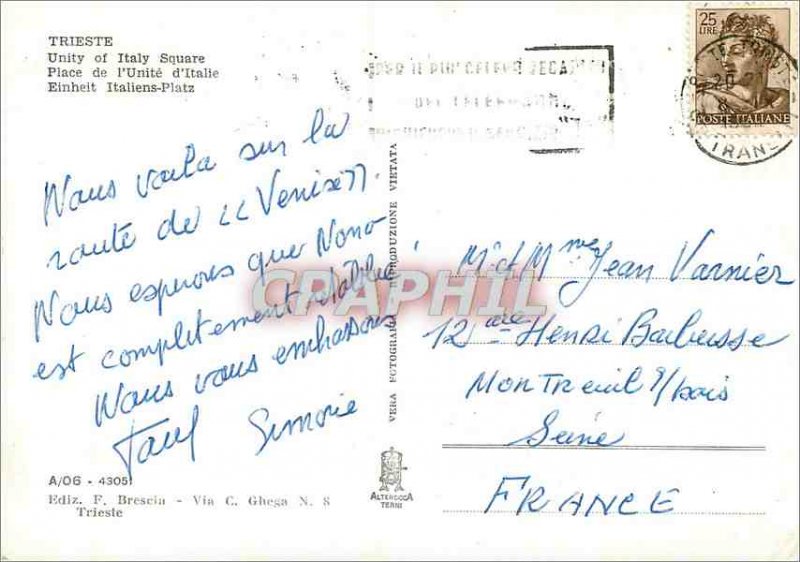 TRIESTE
Unity of Italy Square
Place de l'Unité d'Italie
Einheit Italiens-Platz
25
LIRE
POSTE ITALIANE
Nous voila sur la
route de "Venise".
Nous esperons que Nono
est completement rétablie
Nous vous embrassons
Paul Simone
VERA FOTOGRAFIA RIPRODUZIONE VIETATA
CPAPHIL
M et Mme Jean Varnier
12 Henri Barbusse
Montreuil s/bois
Seine
FRANCE
A/06 - 43051
Ediz. F. Brescia - Via C. Ghega N. 8
Trieste
ALTEROCCA
TERNI